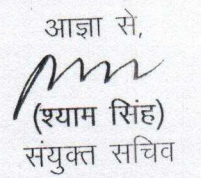 आज्ञा से,
(श्याम सिंह)
संयुक्त सचिव